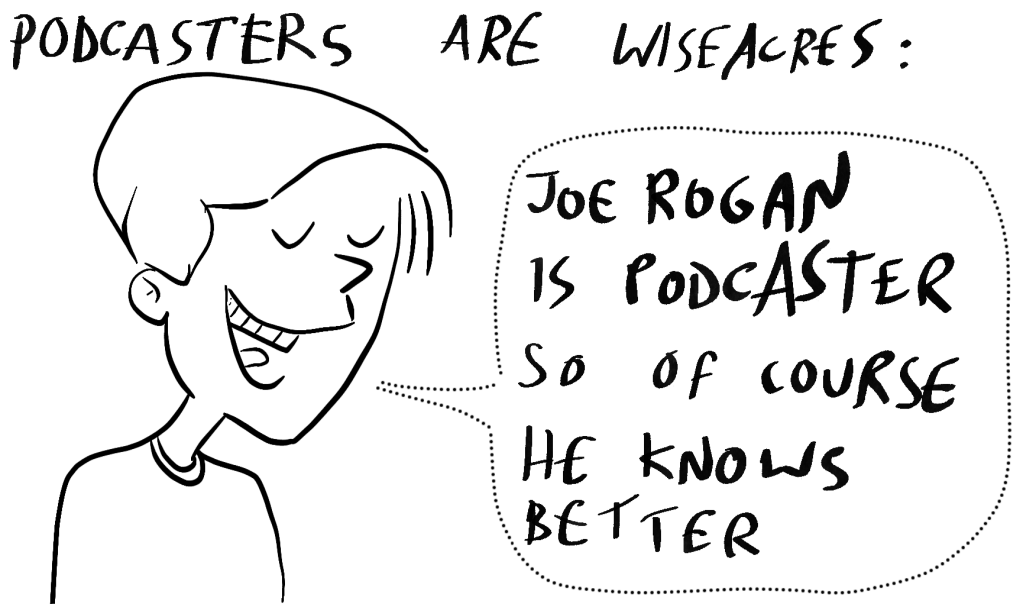 PODCASTERS ARE WISEACRES:
JOE ROGAN
IS PODCASTER
SO OF COURSE
HE KNOWS
BETTER